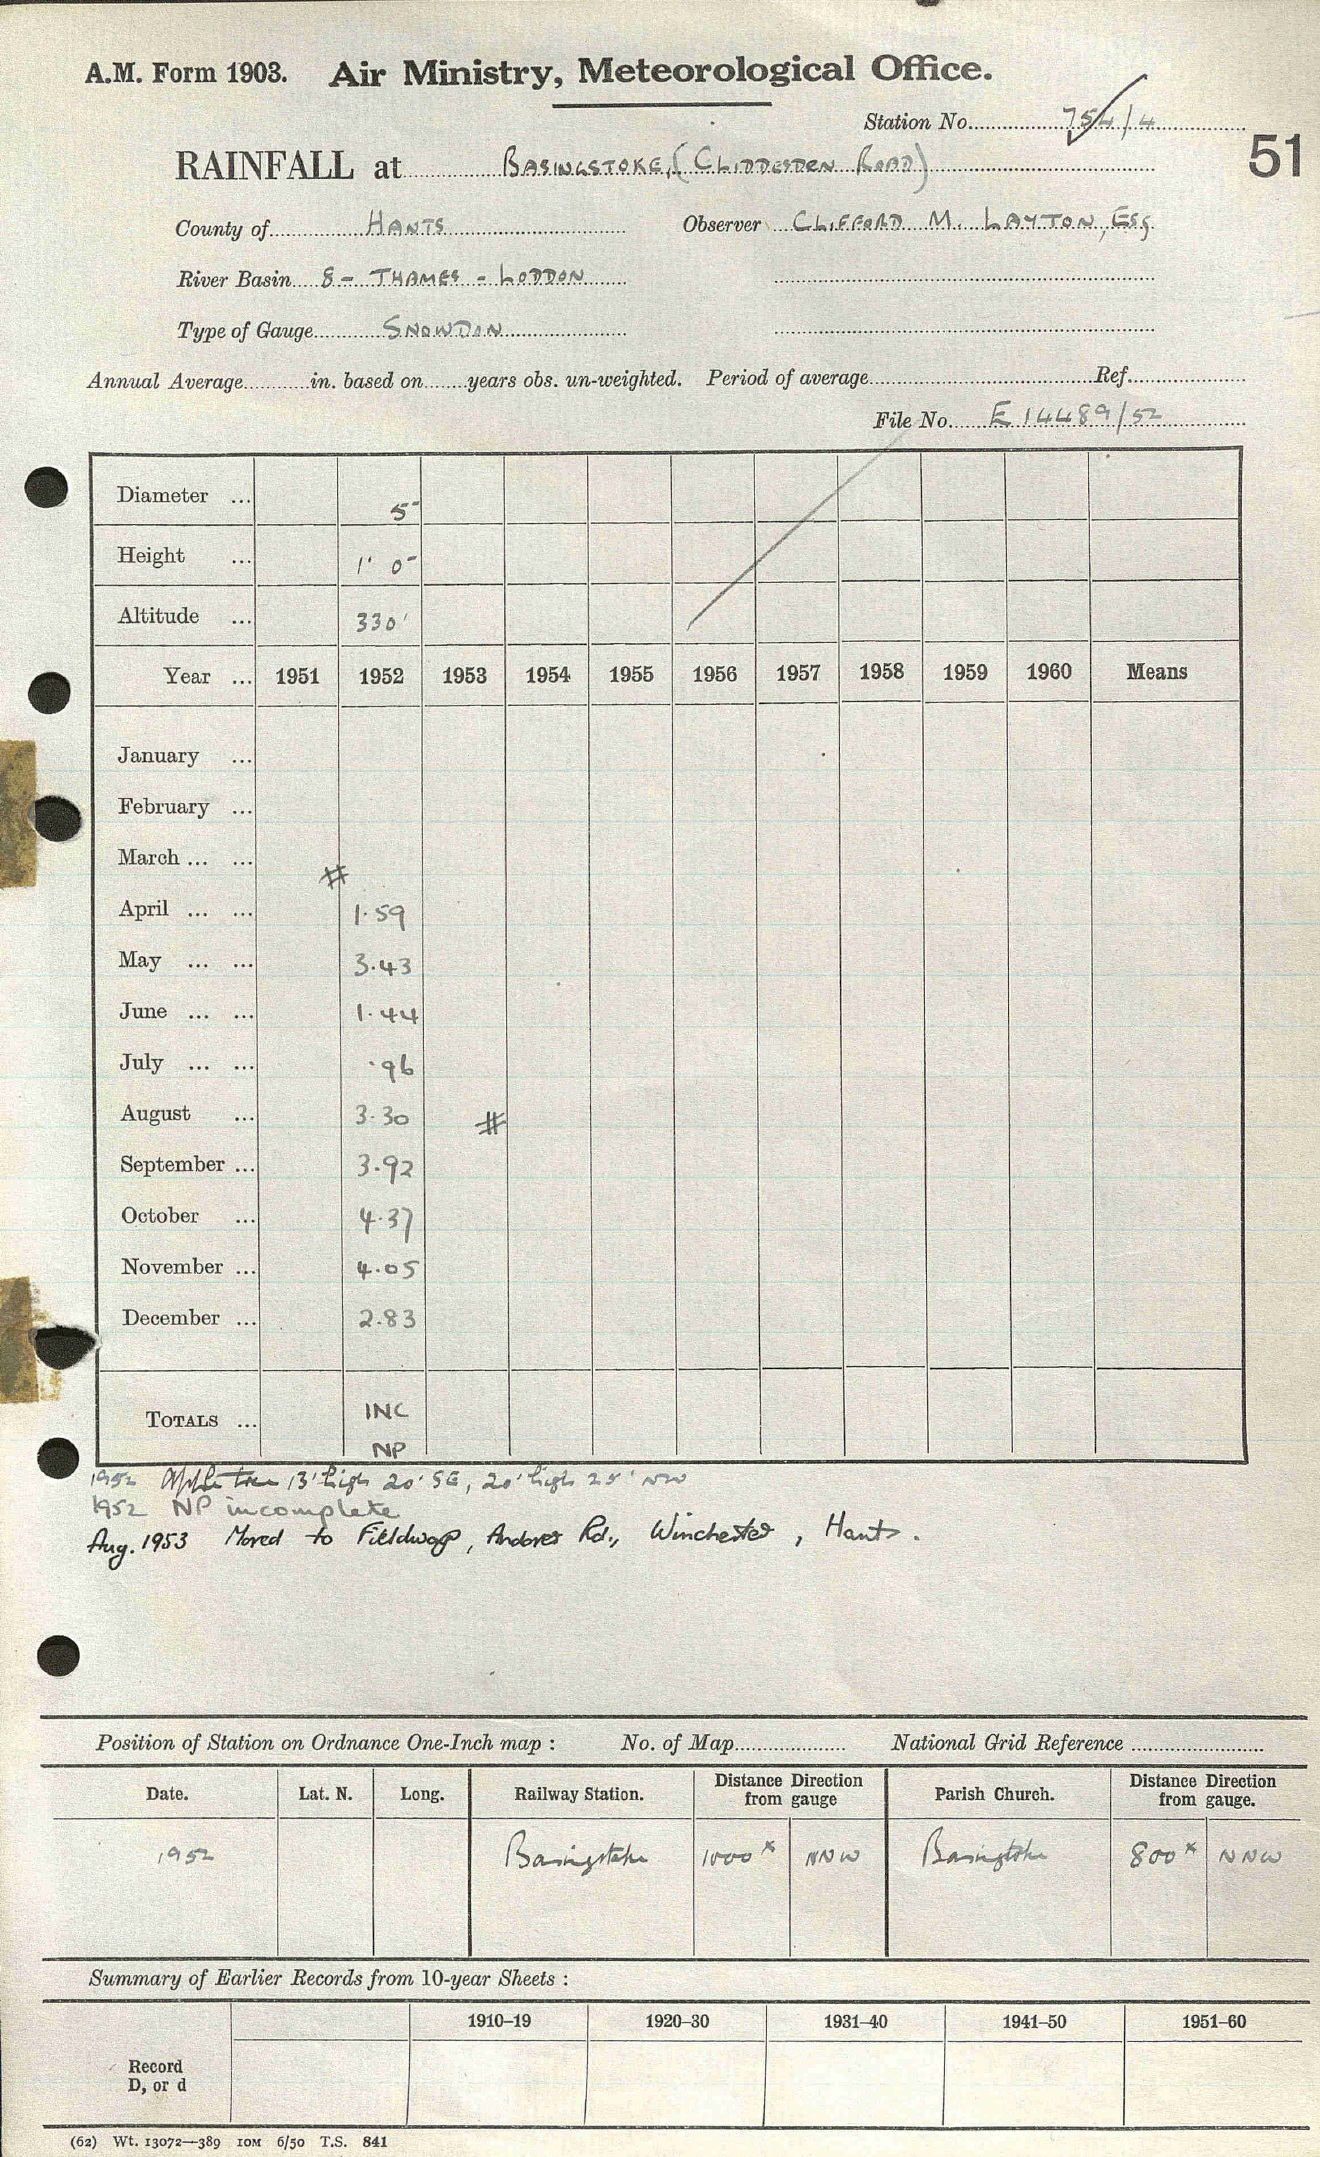 A.M. Form 1903. Air Ministry, Meteorological Office.
Station No. 754/4
51
RAINFALL at BASINGSTOKE, (CLIDDESDEN ROAD)
County of HANTS Observer CLIFFORD M. LAYTON, ESQ
River Basin 8 - THAMES - LODDON
Type of Gauge SNOWDON
Annual Average in. based on years obs. un-weighted. Period of average Ref.
File No. E 14489/52
Diameter ... 5"
Height ... 1' 0"
Altitude ... 330'
Year ... 1951 1952 1953 1954 1955 1956 1957 1958 1959 1960 Means
January ...
February ...
March ... ...
#
April ... ... 1.59
May ... ... 3.43
June ... ... 1.44
July ... ... .96
August ... 3.30 #
September ... 3.92
October ... 4.37
November ... 4.05
December ... 2.83
TOTALS ... INC
NP
1952 Apple tree 13' high 20' SE, 20' high 25' NW
1952 NP incomplete
Aug. 1953 Moved to Andover Rd., Winchester, Hants.
Position of Station on Ordnance One-Inch map : No. of Map National Grid Reference
Date. Lat. N. Long. Railway Station. Distance Direction from gauge Parish Church. Distance Direction from gauge.
1952 Basingstoke 1000x NNW Basingstoke 800x NNW
Summary of Earlier Records from 10-year Sheets :
1910–19 1920–30 1931–40 1941–50 1951–60
Record
D, or d
(62) Wt. 13072—389 10M 6/50 T.S. 841